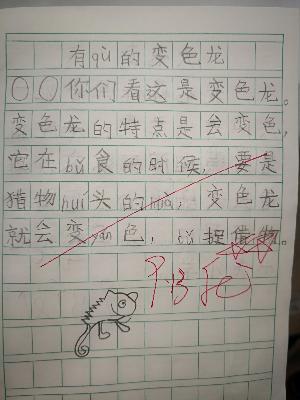 有qù的变色龙
你们看这是变色龙。
变色龙的特点是会变色，
它在bǔ食的时候，要是
猎物huí头的huà，变色龙
就会变yán色，bǔ捉猎物。